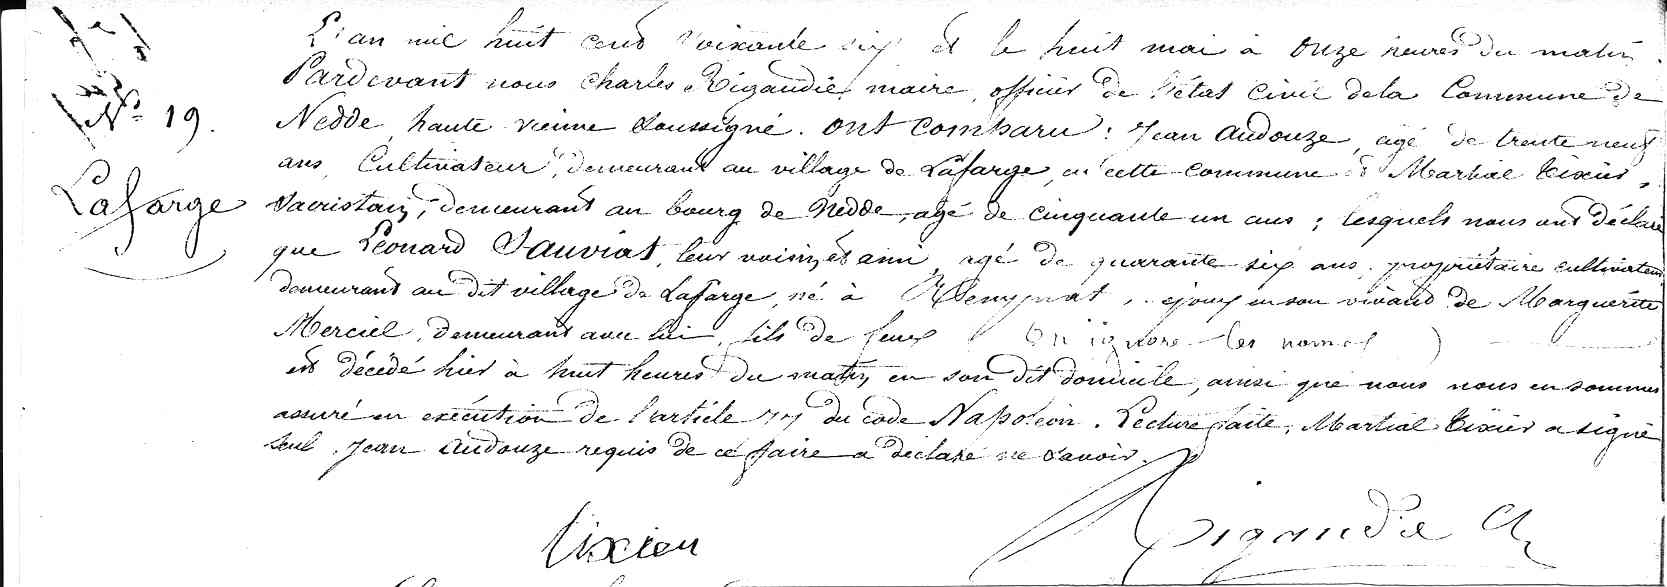 L'an mil huit cent soixante six et le huit mai à onze heures du matin.
Pardevant nous Charles Rigaudie, maire, officier de l'état civil de la Commune de
N° 19.
Nedde, haute vienne soussigné. ont comparu : Jean Audouze, agé de trente neuf
ans, Cultivateur, demeurant au village de Lafarge, en cette commune et Martial Tixier,
Lafarge
Sacristain, demeurant au bourg de Nedde, agé de cinquante un ans ; lesquels nous ont déclaré
que Léonard Sauviat, leur voisin et ami, agé de quarante six ans, propriétaire cultivateur
demeurant au dit village de Lafarge, né à époux en son vivant de Marguerite
Merciel, demeurant avec lui, fils de feux (on ignore les noms)
est décédé hier à huit heures du matin en son dit domicile, ainsi que nous nous en sommes
assuré en exécution de l'article 77 du code Napoléon. Lecture faite, Martial Tixier a signé
seul, Jean Audouze requis de ce faire a déclaré ne savoir.
Tixier
Rigaudie Ch